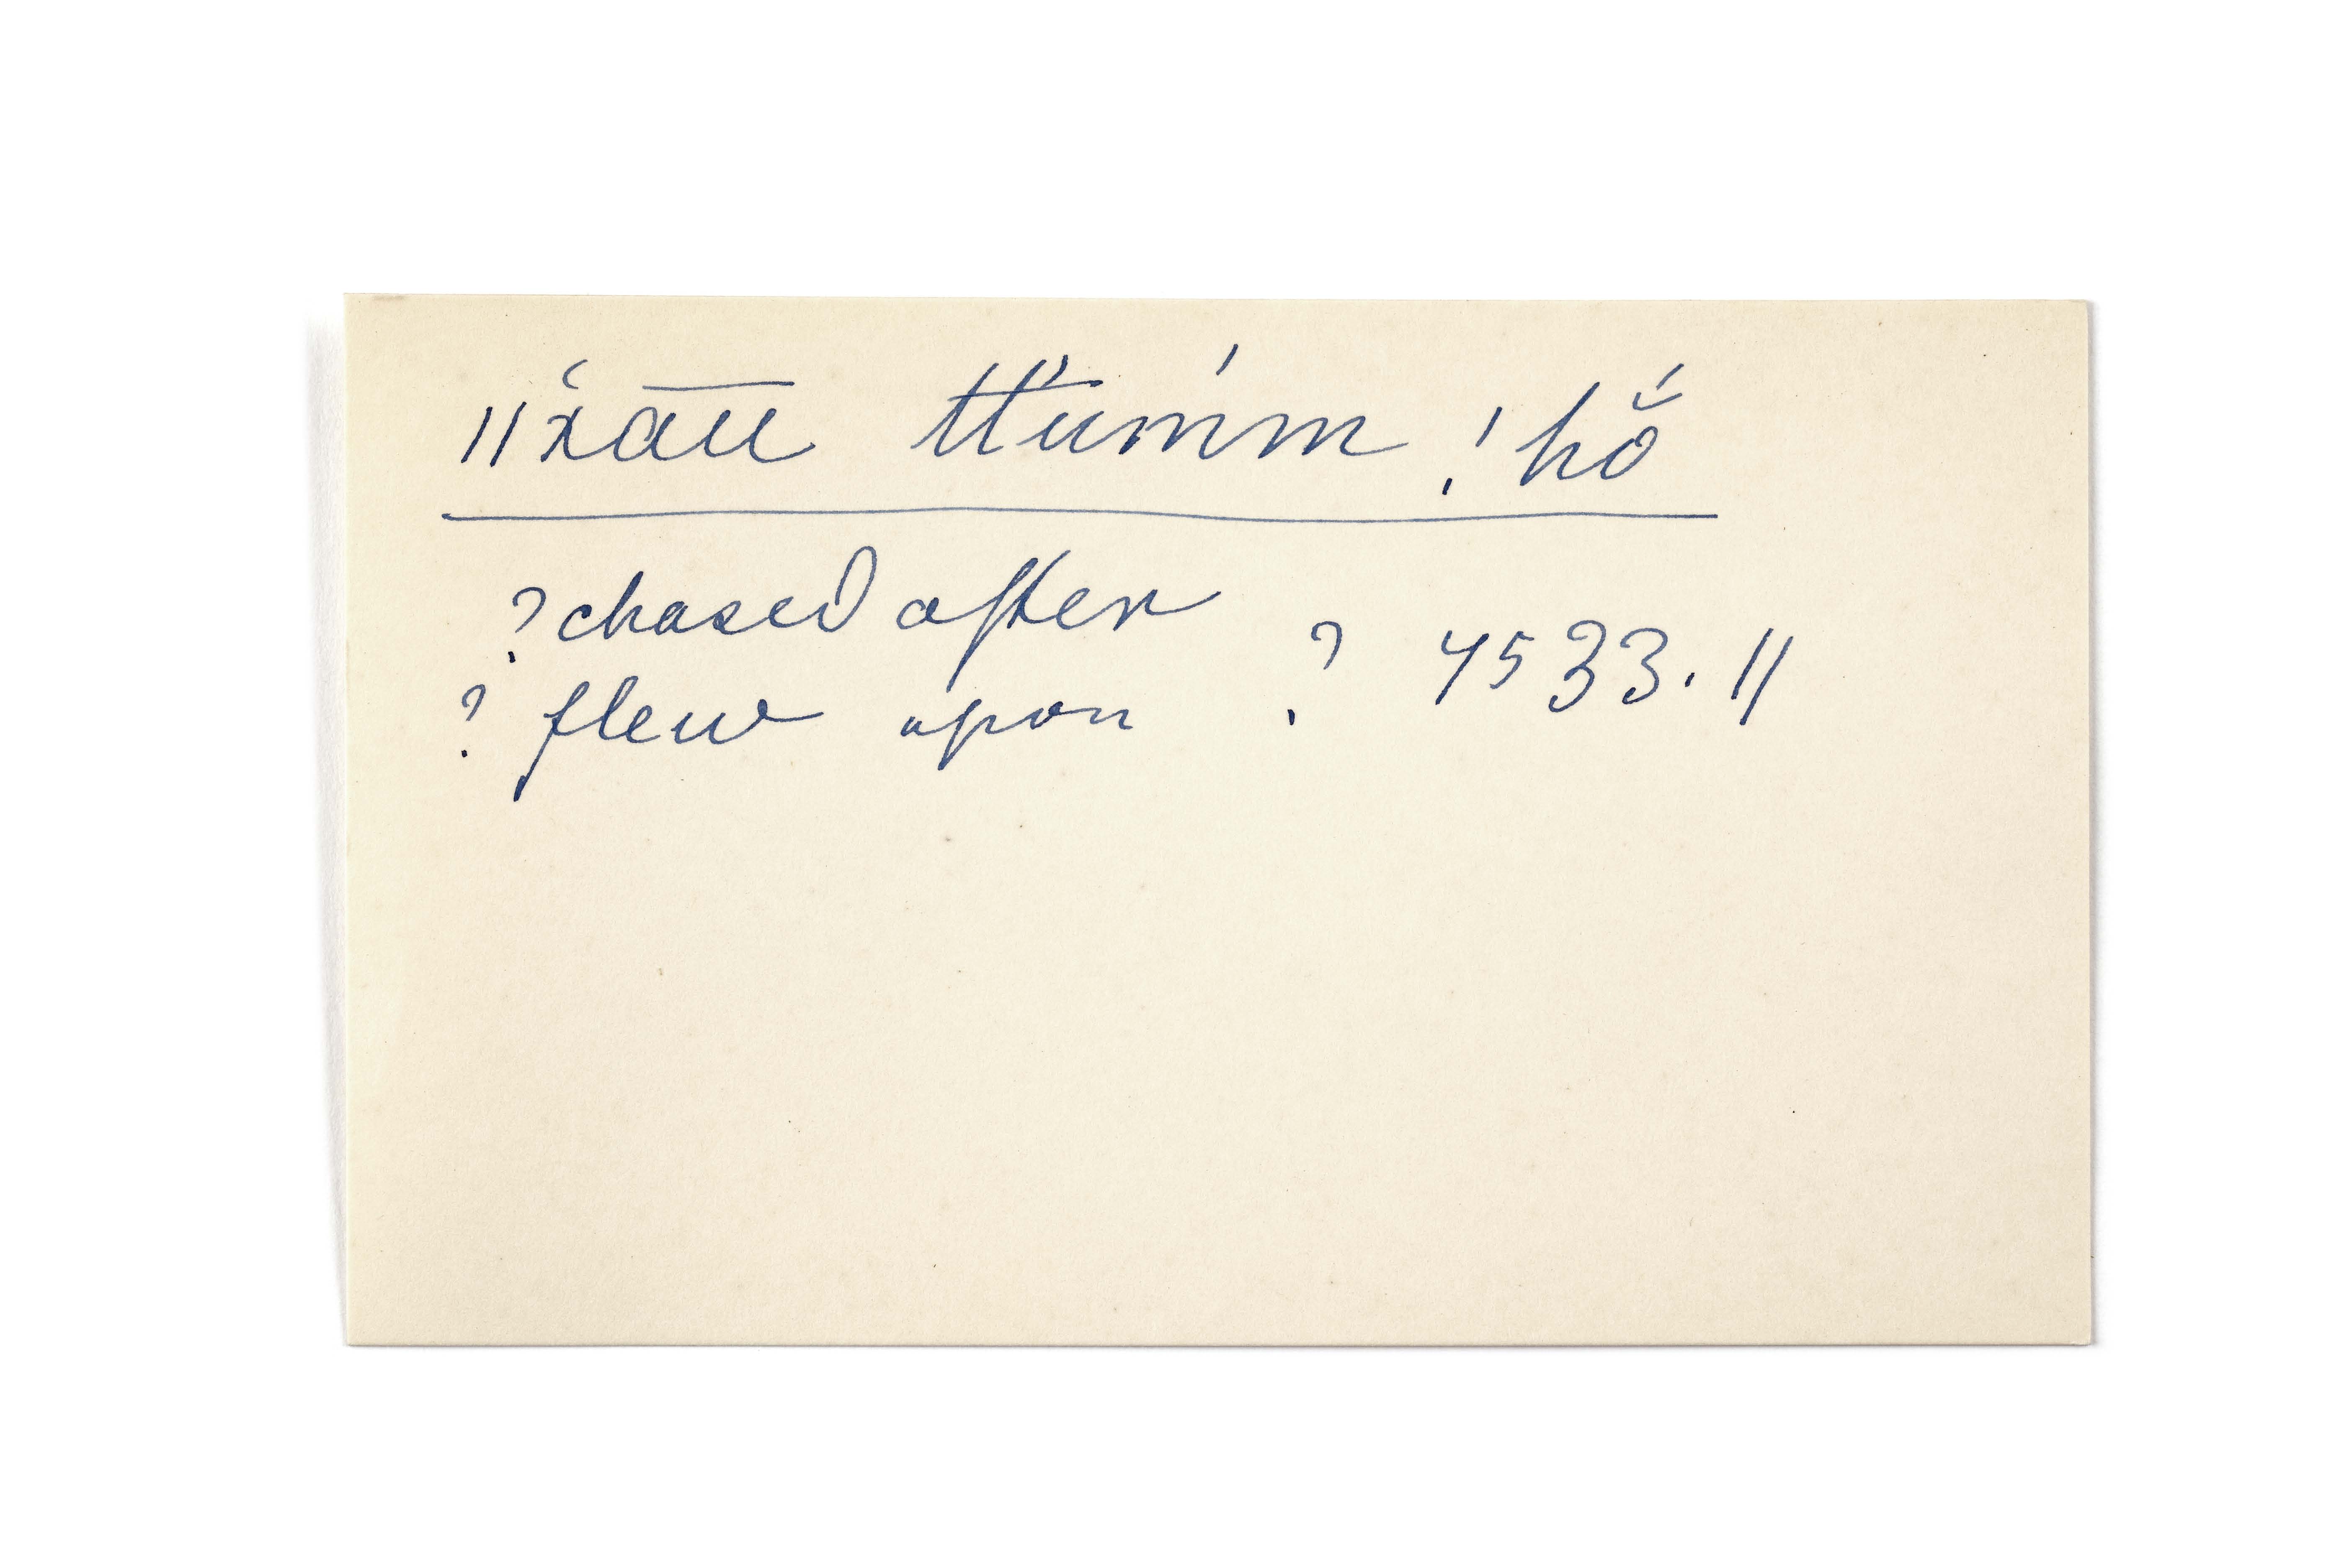 ǁx̔a͞u tt̋umḿ !hŏ́
? chased after
? flew upon ? 4533. ǁ